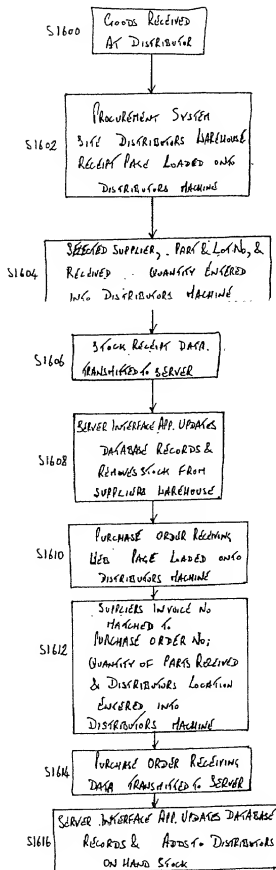 S1600
GOODS RECEIVED
AT DISTRIBUTOR
S1602
PROCUREMENT SYSTEM
SITE DISTRIBUTORS WAREHOUSE
RECEIPT PAGE LOADED ONTO
DISTRIBUTORS MACHINE
S1604
SELECTED SUPPLIER, PART & LOT NO, &
RECEIVED QUANTITY ENTERED
INTO DISTRIBUTORS MACHINE
S1606
STOCK RECEIPT DATA.
TRANSMITTED TO SERVER
S1608
SERVER INTERFACE APP. UPDATES
DATABASE RECORDS &
REMOVES STOCK FROM
SUPPLIERS WAREHOUSE
S1610
PURCHASE ORDER RECEIVING
WEB PAGE LOADED ONTO
DISTRIBUTORS MACHINE
S1612
SUPPLIERS INVOICE NO
MATCHED TO
PURCHASE ORDER NO;
QUANTITY OF PARTS RECEIVED
& DISTRIBUTORS LOCATION
ENTERED INTO
DISTRIBUTORS MACHINE
S1614
PURCHASE ORDER RECEIVING
DATA TRANSMITTED TO SERVER
S1616
SERVER INTERFACE APP. UPDATES DATABASE
RECORDS & ADDS TO DISTRIBUTORS
ON HAND STOCK